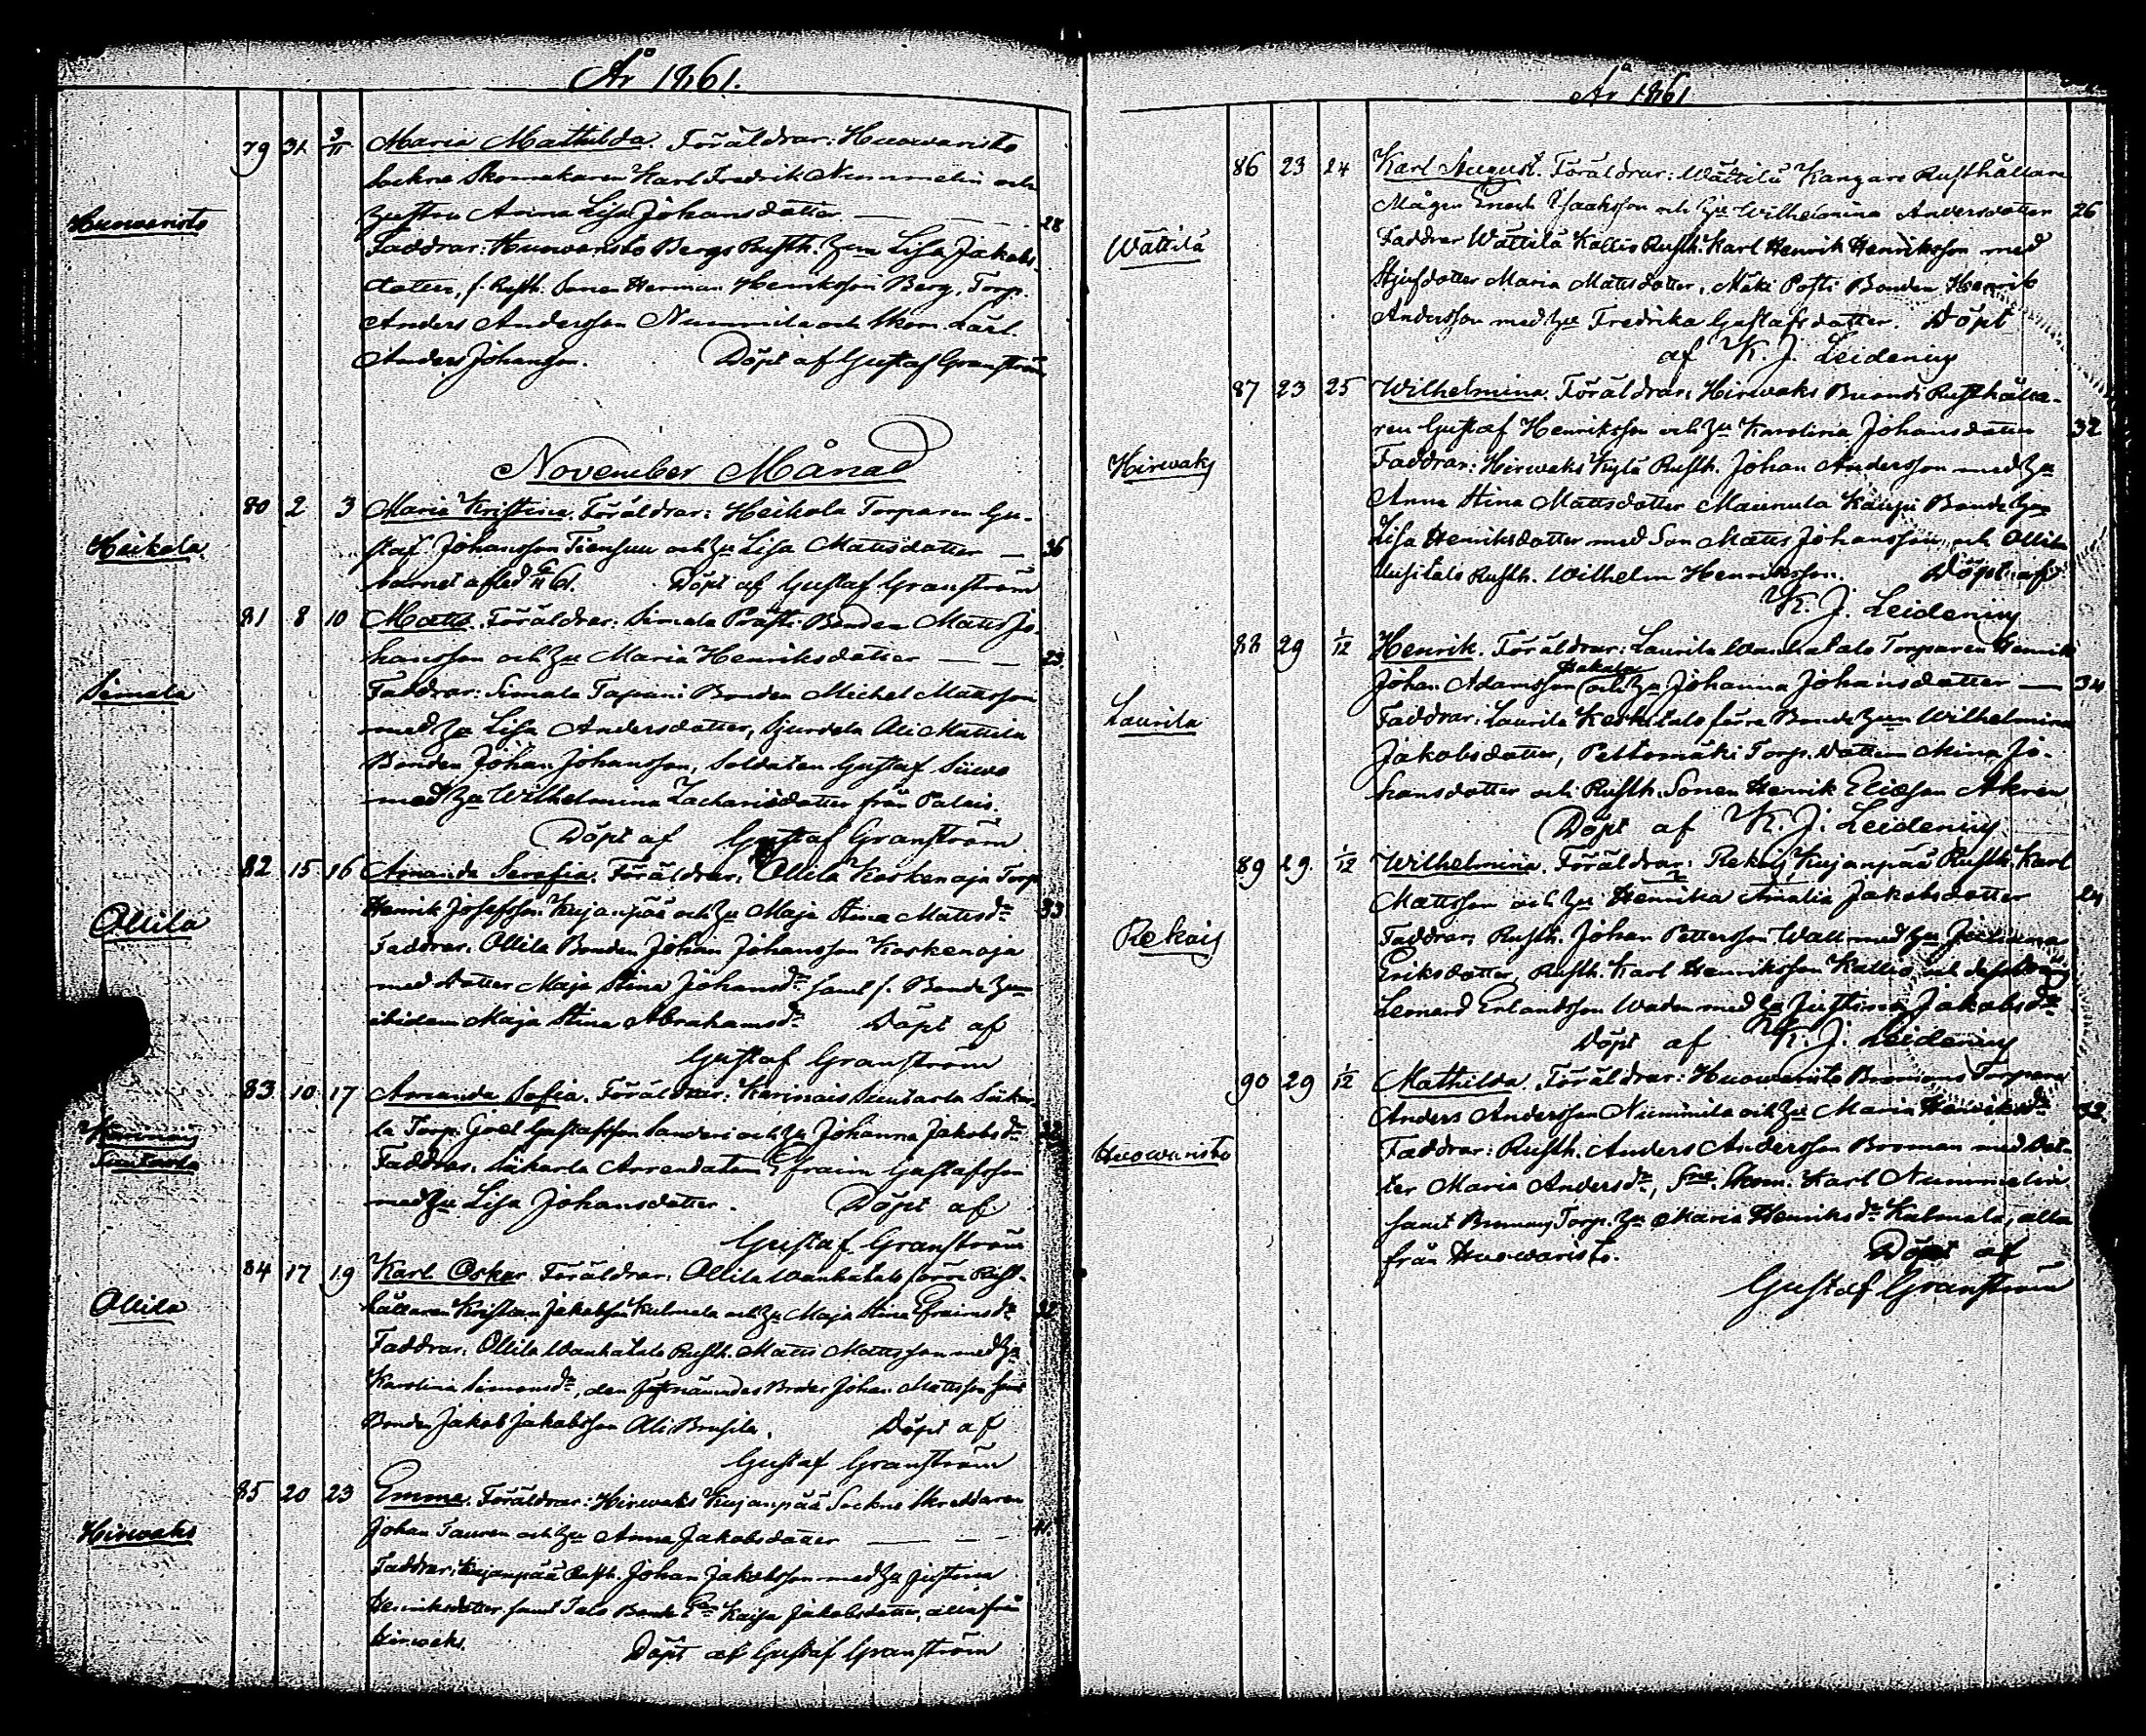 År 1861.
79 31 3/11 Maria Mathilda. Föräldrar: Huowaristo
Sockne Skomakaren Karl Fredrik Nummelin och
Huowaristo Hustru Anna Lisa Johansdotter 28
Faddrar: Huowaristo Bergs Rusth. Hun Lisa Jakobs-
dotter, f. Rusth. Sonen Herman Henriksson Berg, Torp.
Anders Andersson Nummila och Skom. Lärl.
Anders Johansson. Döpt af Gustaf Granström
November Månad
80 2 3 Maria Kristina. Föräldrar: Heikola Torparen Gu-
Heikola staf Johansson Tiensuu och Hu Lisa Mattsdotter — 36
barnet afled 61. Döpt af Gustaf Granström
81 8 10 Matts. Föräldrar: Simala Prästi Bonden Matts Jo-
hansson och Hu Maria Henriksdotter — — 23.
Simala Faddrar: Simala Tapani Bonden Michel Mattsson
med Hu Lisa Andersdotter, Sjurdela Ali Mattila
Bonden Johan Johansson, Soldaten Gustaf Siiwo
med Hu Wilhelmina Zachariedotter från Palais.
Döpt af Gustaf Granström
82 15 16 Amanda Serafia. Föräldrar: Ollila Koskenoja Torp
Henrik Josefsson Kujanpää och Hu Maja Stina Mattsdr 33
Ollila Faddrar: Ollila Bonden Johan Johansson Koskenoja
med dotter Maja Stina Johansdr samt f. Bonde Hun
ibidem Maja Stina Abrahamsdr Döpt af
Gustaf Granström
83 10 17 Amanda Sofia. Föräldrar: Karinais Suutarla Säkär-
Karinais la Torp. Goel Gustafsson Sanderi och Hu Johanna Jakobsdr
Suutarla Faddrar: Säkarla Arrendatorn Efraim Gustafsson
med Hu Lisa Johansdotter. Döpt af
Gustaf Granström
84 17 19 Karl Oskar. Föräldrar: Ollila Wanhatalo förre Rust-
Ollila hållaren Kristian Jakobsson Kulmala och Hu Maja Stina Efraimsdr
Faddrar: Ollila Wanhatalo Rusth. Matts Mattsson med Hu
Karolina Simonsdr, den förstnämndes Broder Johan Mattsson samt
Bonden Jakob Jakobsson Ali Brusila. Döpt af
Gustaf Granström
85 20 23 Emma. Föräldrar: Hirwoaks Kujanpää Sockne Skreddaren
Hirwoaks Johan Tauren och Hu Anna Jakobsdotter — —
Faddrar: Kujanpää Rusth. Johan Jakobsson med Hu Justina
Henriksdotter samt Talo Bonde Kaisa Jakobsdotter, alla från
Hirwoaks. Döpt af Gustaf Granström
År 1861
86 23 24 Karl August. Föräldrar: Wättilä Kangare Rusthållare
Mågen Enoch Isaaksson och Hu Wilhelmina Andersdotter 26
Wättilä Faddrar Wättilä Kallis Rusth. Karl Henrik Henriksson med
Stjufdotter Maria Mattsdotter, Mäki Posti Bonden Henrik
Andersson med Hu Fredrika Gustafsdotter. Döpt
af K. J. Leidenius
87 23 25 Wilhelmina. Föräldrar: Hirwoaks Buands Rusthålla-
ren Gustaf Henriksson och Hu Karolina Johansdotter 32
Hirwoaks Faddrar: Hirwoaks Kylä Rusth. Johan Andersson med Hu
Anna Stina Mattsdotter Maunula Kauppi Bonde Hun
Lisa Henriksdotter med Son Matts Johansson och Ollila
Uusitalo Rusth. Wilhelm Henriksson. Döpt af
K. J. Leidenius
88 29 1/12 Henrik. Föräldrar: Laurila Wanhatalo Torparen Henrik
Johan Adamsson Pakala och Hu Johanna Johansdotter — 34
Laurila Faddrar: Laurila Keskitalo förre Bonde Hun Wilhelmina
Jakobsdotter, Peltomäki Torp. Dottern Mina Jo-
hansdotter och Rusth. Sonen Henrik Eliasson Akren
Döpt af K. J. Leidenius
89 29. 1/12 Wilhelmina. Föräldrar: Rekois Kujanpää Rusth. Karl
Mattsson och Hu Henrika Amalia Jakobsdotter 24
Rekois Faddrar: Rusth. Johan Pettersson Wall med Hu
Eriksdotter, Rusth. Karl Henriksson Kallio och
Leonard Erlandsson Waden med Hu Justina Jakobsdr
Döpt af K. J. Leidenius
90 29 1/12 Mathilda. Föräldrar: Huowaristo Bromans Torpare
Anders Andersson Nummila och Hu Maria Henriksdr 32.
Huowaristo Faddrar: Rusth. Anders Andersson Broman med Dot-
ter Maria Andersdr, Sne. Skom. Karl Nummelin
samt Bromans Torp. Hu Maria Henriksdr Kulmala, alla
från Huowaristo. Döpt af
Gustaf Granström